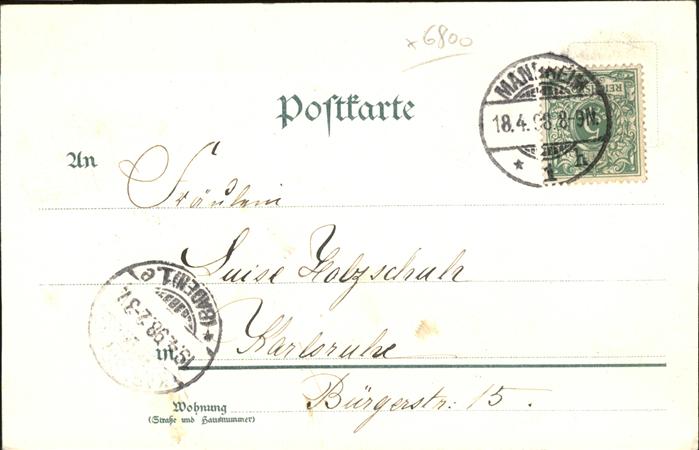 x 6800
Postkarte
MANNHEIM
18.4.98.8-9N.
* 1 h
5
An Fräulein
Luise Holzschuh
in Karlsruhe
Bürgerstr: 15.
(BADEN) 1.e
Wohnung
(Straße und Hausnummer)